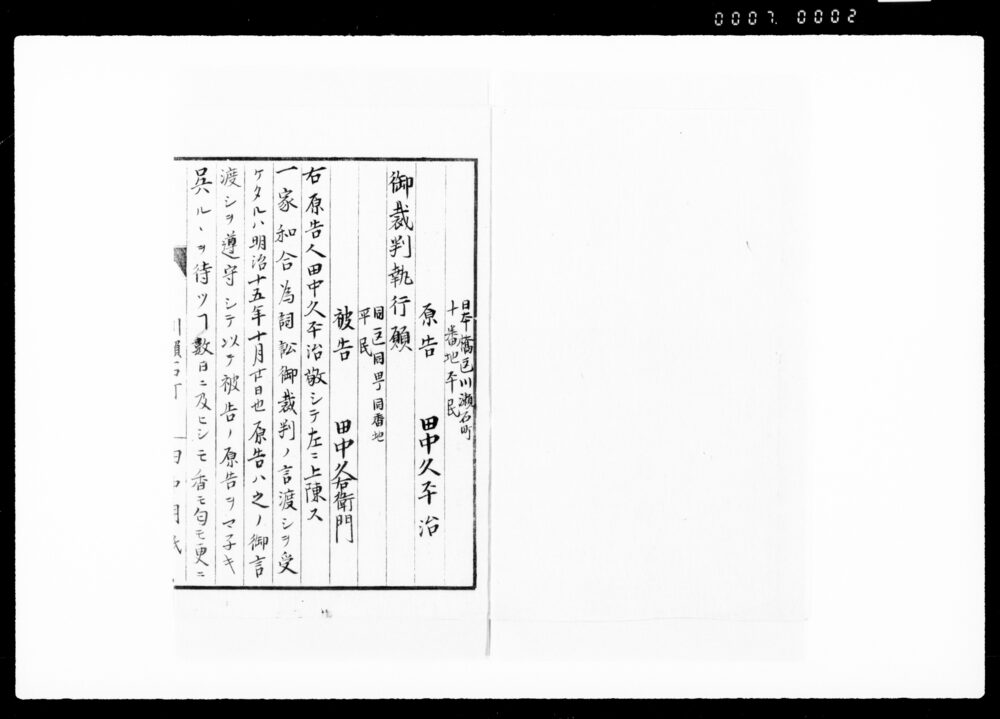 0007. 0002
日本橋區川瀬石町
十番地平民
原告 田中久平治
御裁判執行願
同區同町同番地
平民
被告 田中久右衛門
右原告人田中久平治敬シテ左ニ上陳ス
一家和合為詞訟御裁判ノ言渡シヲ受
ケタルハ明治十五年十月廿日也原告ハ之ノ御言
渡シヲ遵守シテ以テ被告ノ原告ヲマ子キ
呉ルヽヲ待ツヿ數日ニ及ヒシモ香モ匂モ更ニ